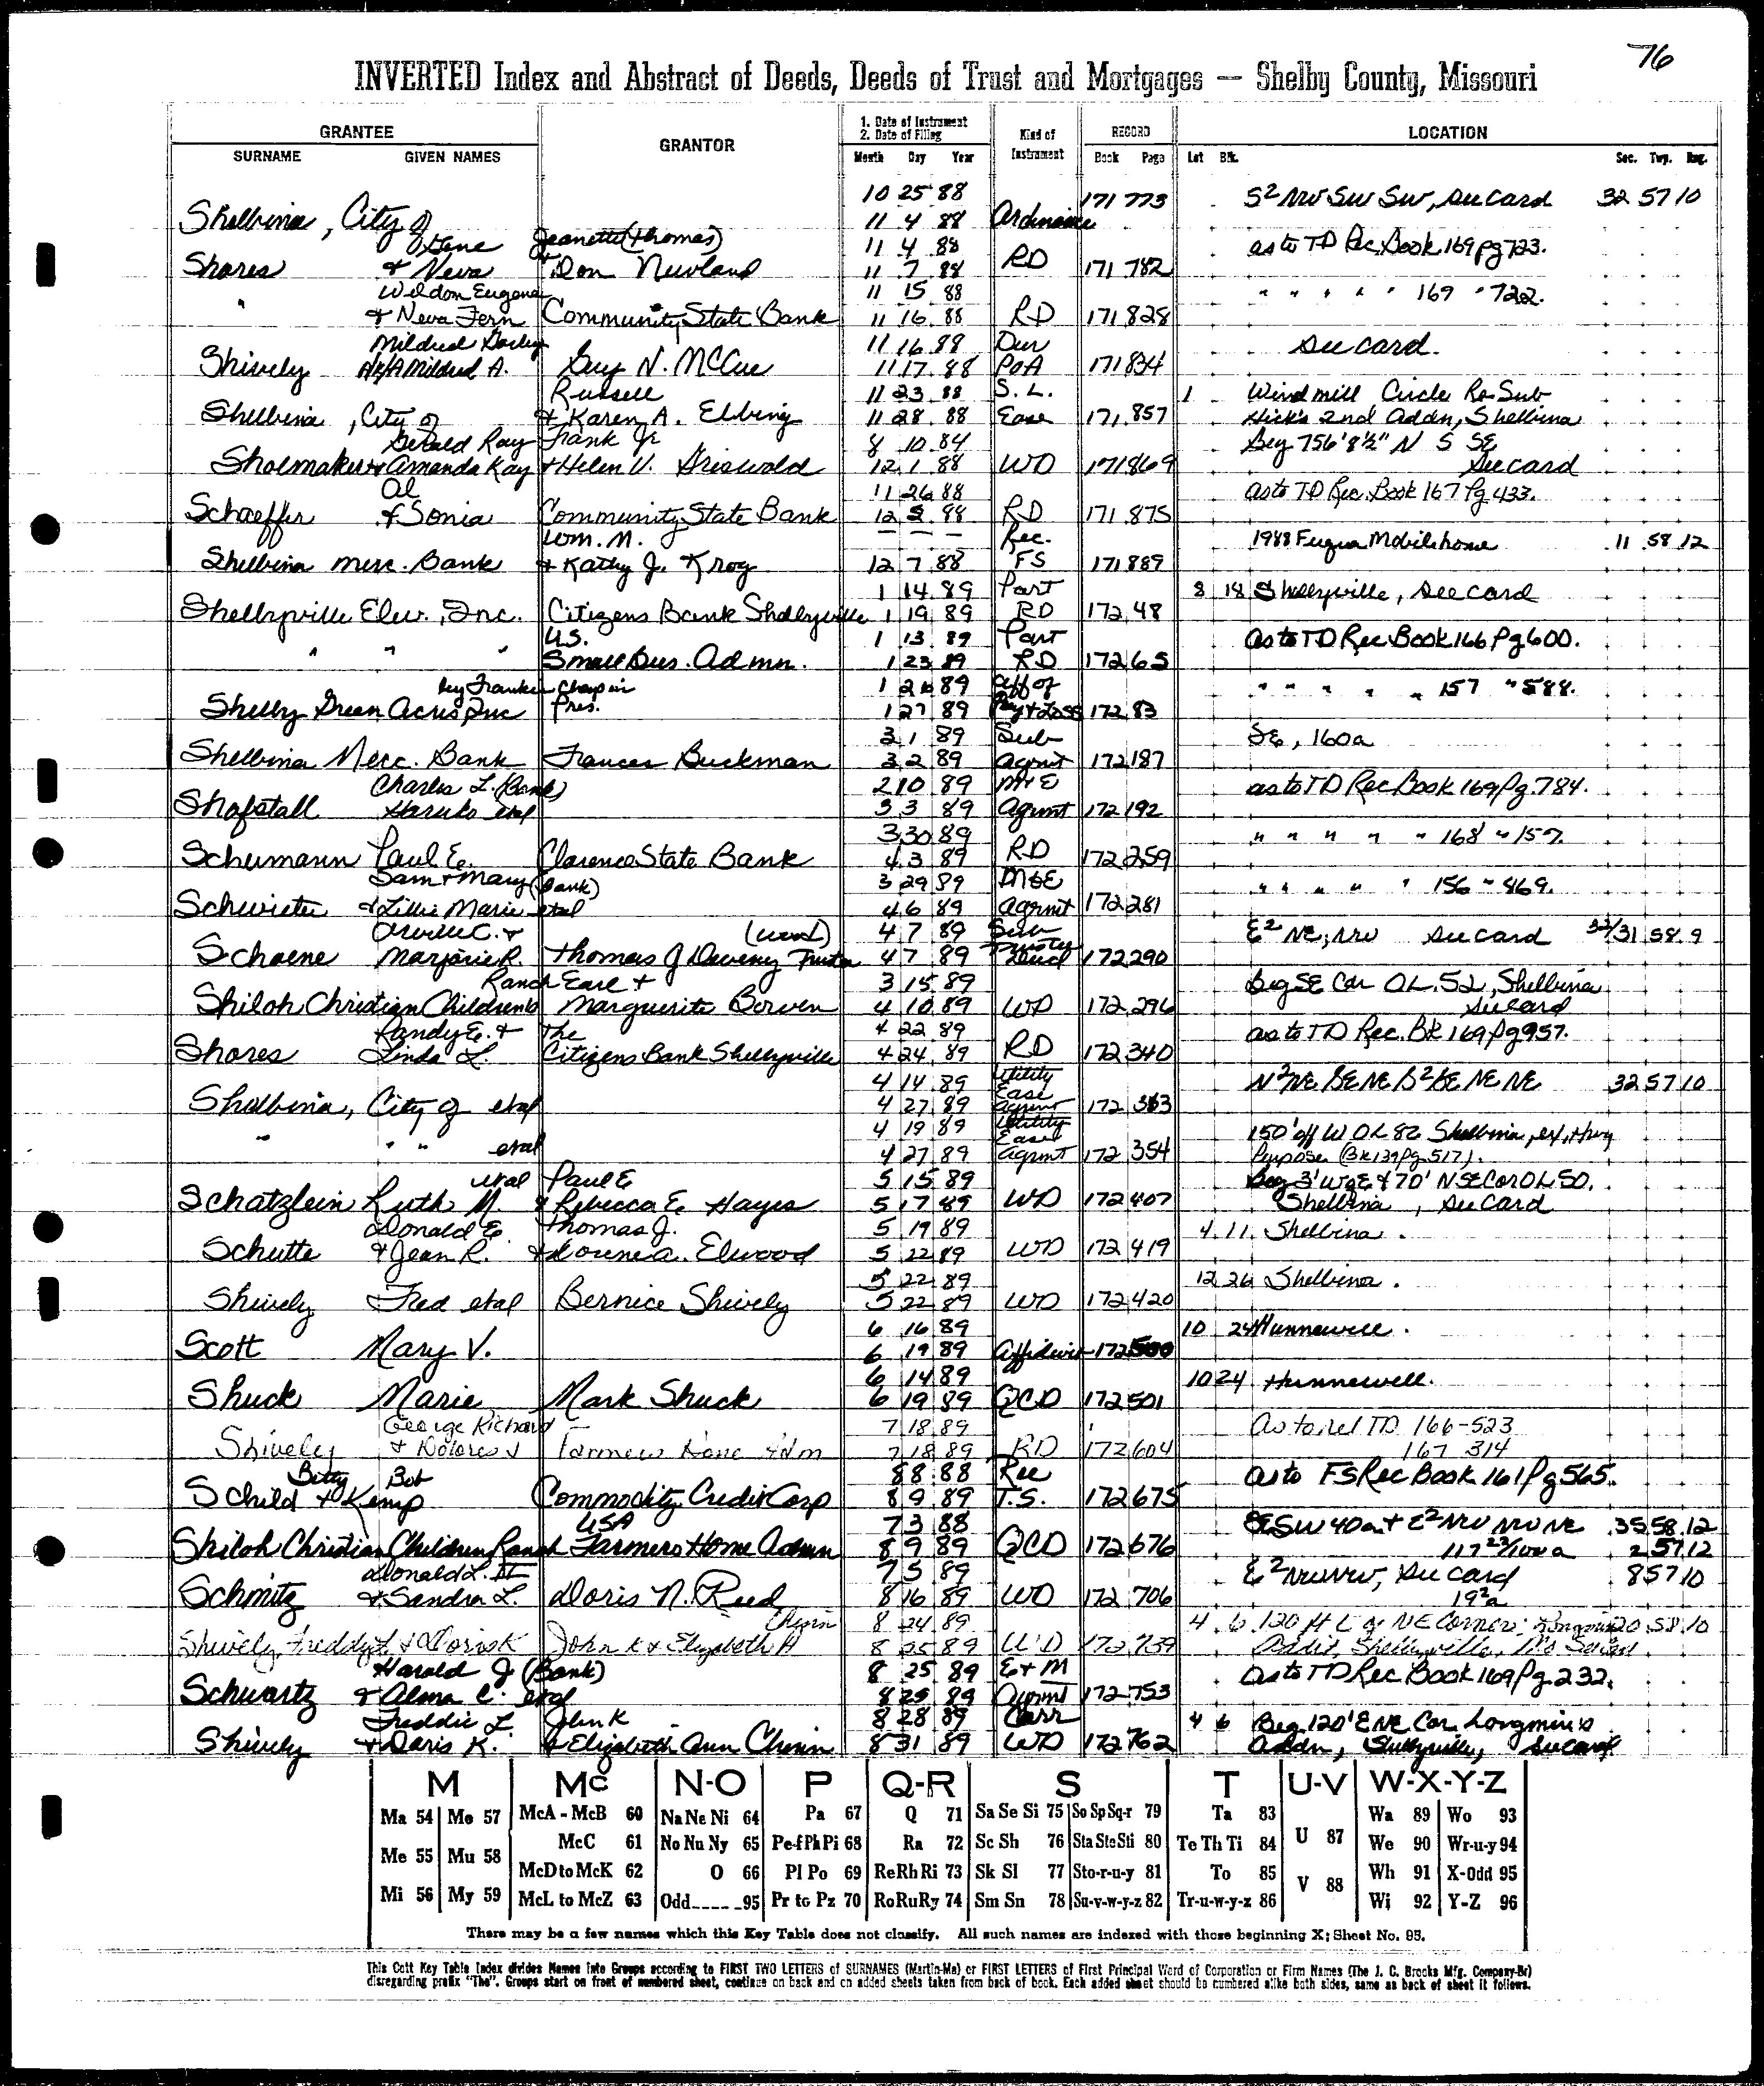 76
INVERTED Index and Abstract of Deeds, Deeds of Trust and Mortgages — Shelby County, Missouri
GRANTEE GRANTOR 1. Date of Instrument 2. Date of Filing Kind of Instrument RECORD LOCATION
SURNAME GIVEN NAMES Month Day Year Book Page Lot Blk. Sec. Twp. Rng.
10 25 88 171 773 S2 NW SW SW, see card 32 57 10
Shelbina, City of 11 4 88 Ordinance
Gene Jeanette (Thomas) 11 4 88 as to TD Rec. Book 169 pg 723.
Shores & Neva & Don Newland 11 7 88 RD 171 782
Weldon Eugene 11 15 88 " " " " " 169 " 722.
" & Neva Fern Community State Bank 11 16 88 RD 171 828
Mildred 11 16 88 Dur see card.
Shively A/K/A Mildred A. Guy N. McCue 11 17 88 PoA 171 834
Russell 11 23 88 S. L. 1 Windmill Circle Re-Sub
Shelbina, City of & Karen A. Ebbing 11 28 88 Ease 171 857 Hick's 2nd Addn, Shelbina
Gerald Ray Frank Jr 8 10 84 Beg 756' 8½" N S SE
Shoemaker & Amanda Kay & Helen V. Griswold 12 1 88 WD 171 869 see card
Al 11 26 88 as to TD Rec. Book 167 Pg 433.
Schaeffer & Sonia Community State Bank 12 5 88 RD 171 875
Wm. M. — — — Rec. 1988 Fuqua Mobilehome 11 58 12
Shelbina Merc. Bank & Kathy J. Krog 12 7 88 FS 171 889
1 14 89 Part 8 18 Shelbyville, see card
Shelbyville Elev., Inc. Citizens Bank Shelbyville 1 19 89 RD 172 48
U.S. 1 13 89 Part as to TD Rec Book 166 Pg 600.
" " " Small Bus. Admn. 1 23 89 RD 172 65
by Frankie Chapin 1 26 89 Aff of " " " " " 157 " 588.
Shelby Green Acres Inc Pres. 1 27 89 Pay & Loss 172 83
3 1 89 Sub SE, 160a
Shelbina Merc. Bank Frances Buckman 3 2 89 Agmt 172 187
Charles L. (Bank) 2 10 89 M&E as to TD Rec Book 169 Pg. 784.
Shofstall Haruko etal 3 3 89 Agrmt 172 192
3 30 89 " " " " " 168 " 157.
Schumann Paul E. Clarence State Bank 4 3 89 RD 172 259
Sam & Mary (Bank) 3 29 89 M&E " " " " " 156 " 469.
Schwieter & Lillie Marie etal 4 6 89 Agrmt 172 281
Orville C. & 4 7 89 Sub E2 NE; NW see card 32/31 58 9
Schoene Marjorie R. Thomas J Deveny Trustee 4 7 89 Trustee Deed 172 290
Ranch Earl & 3 15 89 Beg SE Cor OL 52, Shelbina
Shiloh Christian Childrens Marguerite Bowen 4 10 89 WD 172 296 see card
Randy E. & The 4 22 89 as to TD Rec. Bk 169 Pg 957.
Shores Linda L. Citizens Bank Shelbyville 4 24 89 RD 172 340
4 14 89 Utility Ease N2 NE SE NE S2 SE NE NE 32 57 10
Shelbina, City of etal 4 27 89 Agrmt 172 353
4 19 89 Utility Ease 150' off W OL 82 Shelbina, ex, Hwy
" " " etal 4 27 89 Agrmt 172 354 Purpose (Bk 139 Pg. 517).
etal Paul E 5 15 89 Beg 3' W & 70' N SE Cor OL 50.
Schatzlein Ruth M. & Rebecca E. Hayes 5 17 89 WD 172 407 Shelbina, see card
Donald E. Thomas J. 5 19 89 4 11 Shelbina.
Schutte & Jean R. Elwood 5 22 89 WD 172 419
5 22 89 12 26 Shelbina.
Shively Fred etal Bernice Shively 5 22 89 WD 172 420
6 16 89 10 24 Hunnewell.
Scott Mary V. 6 19 89 Affidavit 172 500
6 14 89 10 24 Hunnewell.
Shuck Marie Mark Shuck 6 19 89 QCD 172 501
George Richard 7 18 89 As to rel TD 166-523
Shively & Dolores J Farmers Home Adm 7 18 89 RD 172 604 167 314
Betty Bob 8 8 88 Rec as to FS Rec Book 161 Pg 565.
Schild & Kemp Commodity Credit Corp 8 9 89 T.S. 172 675
USA 7 3 88 SE SW 40a & E2 NW NW NE 35 58 12
Shiloh Christian Children Ranch Farmers Home Admn 8 9 89 QCD 172 676 117 23/100 a 2 57 12
Donald L. III 7 5 89 E2 NW NW, see card 8 57 10
Schmitz & Sandra L. Doris N. Reed 8 16 89 WD 172 706 19 2a
Chinn 8 24 89 4 6 120 ft E of NE Corner; Longmire 20 58 10
Shively, Freddy L & Doris K John K & Elizabeth A 8 25 89 WD 172 739 Addit, Shelbyville, Mo See Card
Harold J (Bank) 8 25 89 E&M as to TD Rec Book 169 Pg 232.
Schwartz & Alma C. etal 8 29 89 Agrmt 172 753
Freddie L. John K 8 28 89 Corr 4 6 Beg 120' E NE Cor Longmire's
Shively & Doris K. & Elizabeth Ann Chinn 8 31 89 WD 172 762 Addn, Shelbyville, see card
M Mc N-O P Q-R S T U-V W-X-Y-Z
Ma 54 Mo 57 McA - McB 60 Na Ne Ni 64 Pa 67 Q 71 Sa Se Si 75 So Sp Sq-r 79 Ta 83 U 87 Wa 89 Wo 93
McC 61 No Nu Ny 65 Pe-f Ph Pi 68 Ra 72 Sc Sh 76 Sta Ste Sti 80 Te Th Ti 84 We 90 Wr-u-y 94
Me 55 Mu 58 McD to McK 62 O 66 Pl Po 69 Re Rh Ri 73 Sk Sl 77 Sto-r-u-y 81 To 85 V 88 Wh 91 X-Odd 95
Mi 56 My 59 McL to McZ 63 Odd 95 Pr to Pz 70 Ro Ru Ry 74 Sm Sn 78 Su-v-w-y-z 82 Tr-u-w-y-z 86 Wi 92 Y-Z 96
There may be a few names which this Key Table does not classify. All such names are indexed with those beginning X; Sheet No. 95.
This Cott Key Table Index divides Names into Groups according to FIRST TWO LETTERS of SURNAMES (Martin-Ma) or FIRST LETTERS of First Principal Word of Corporation or Firm Names (The J. C. Brooks Mfg. Company-Br)
disregarding prefix "The". Groups start on front of numbered sheet, continue on back and on added sheets taken from back of book. Each added sheet should be numbered alike both sides, same as back of sheet it follows.